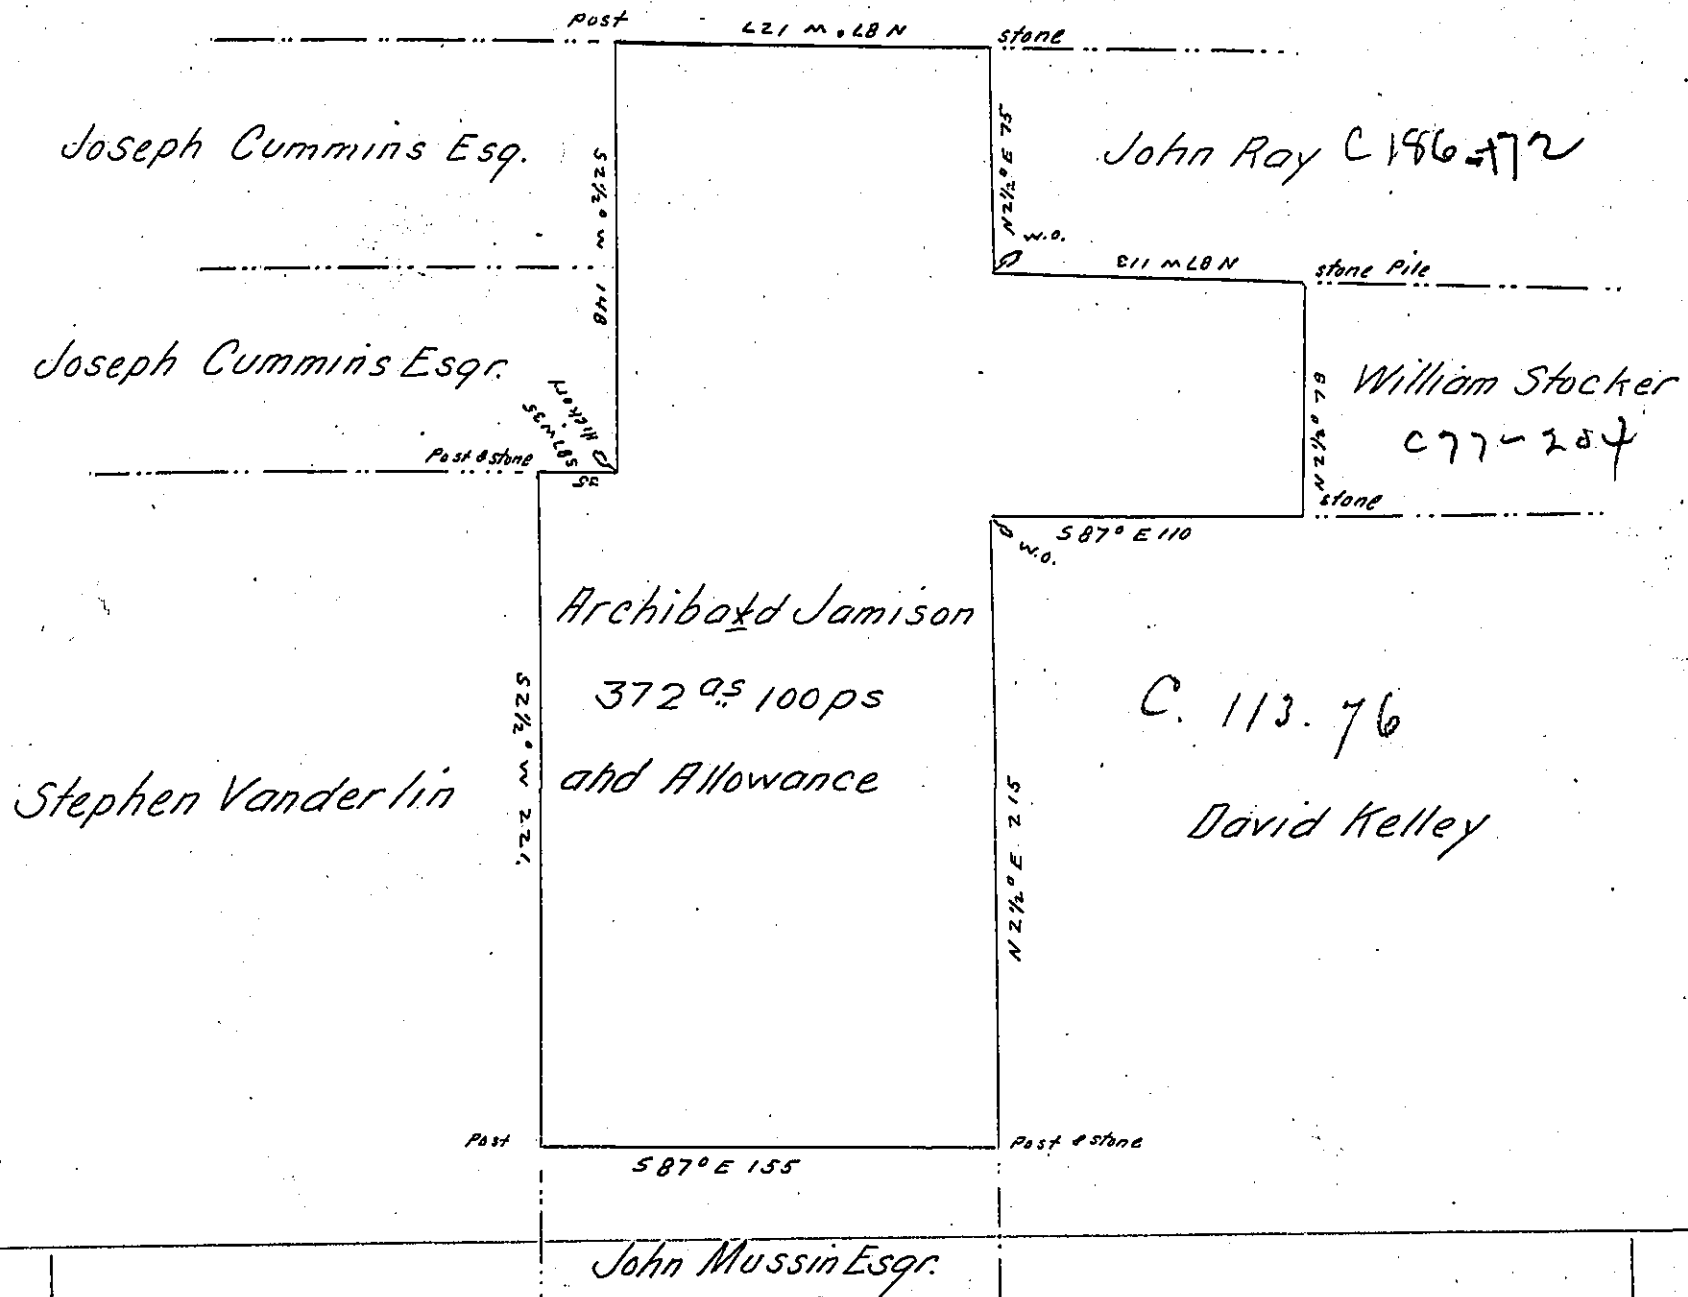 post
N 87° W 127
stone
Joseph Cummins Esq.
S 2½° W 148
N 2½° E 75
John Ray C 186-172
W.O.
N 87 W 113
stone Pile
Joseph Cummins Esqr.
Hickory
S 87 W 35
Post & stone
N 2½° 78
William Stocker
C 77-204
stone
S 87° E 110
W.O.
Archibald Jamison
372 as 100 ps
and Allowance
S 2½° W 221,
N 2½° E 215
C. 113. 76
David Kelley
Stephen Vanderlin
Post
S 87° E 155
Post & stone
John Mussin Esqr.